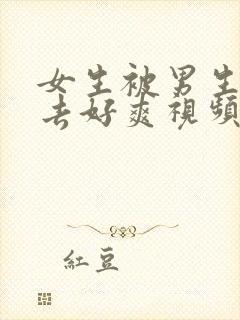 女生被男生
去好爽視頻
紅豆